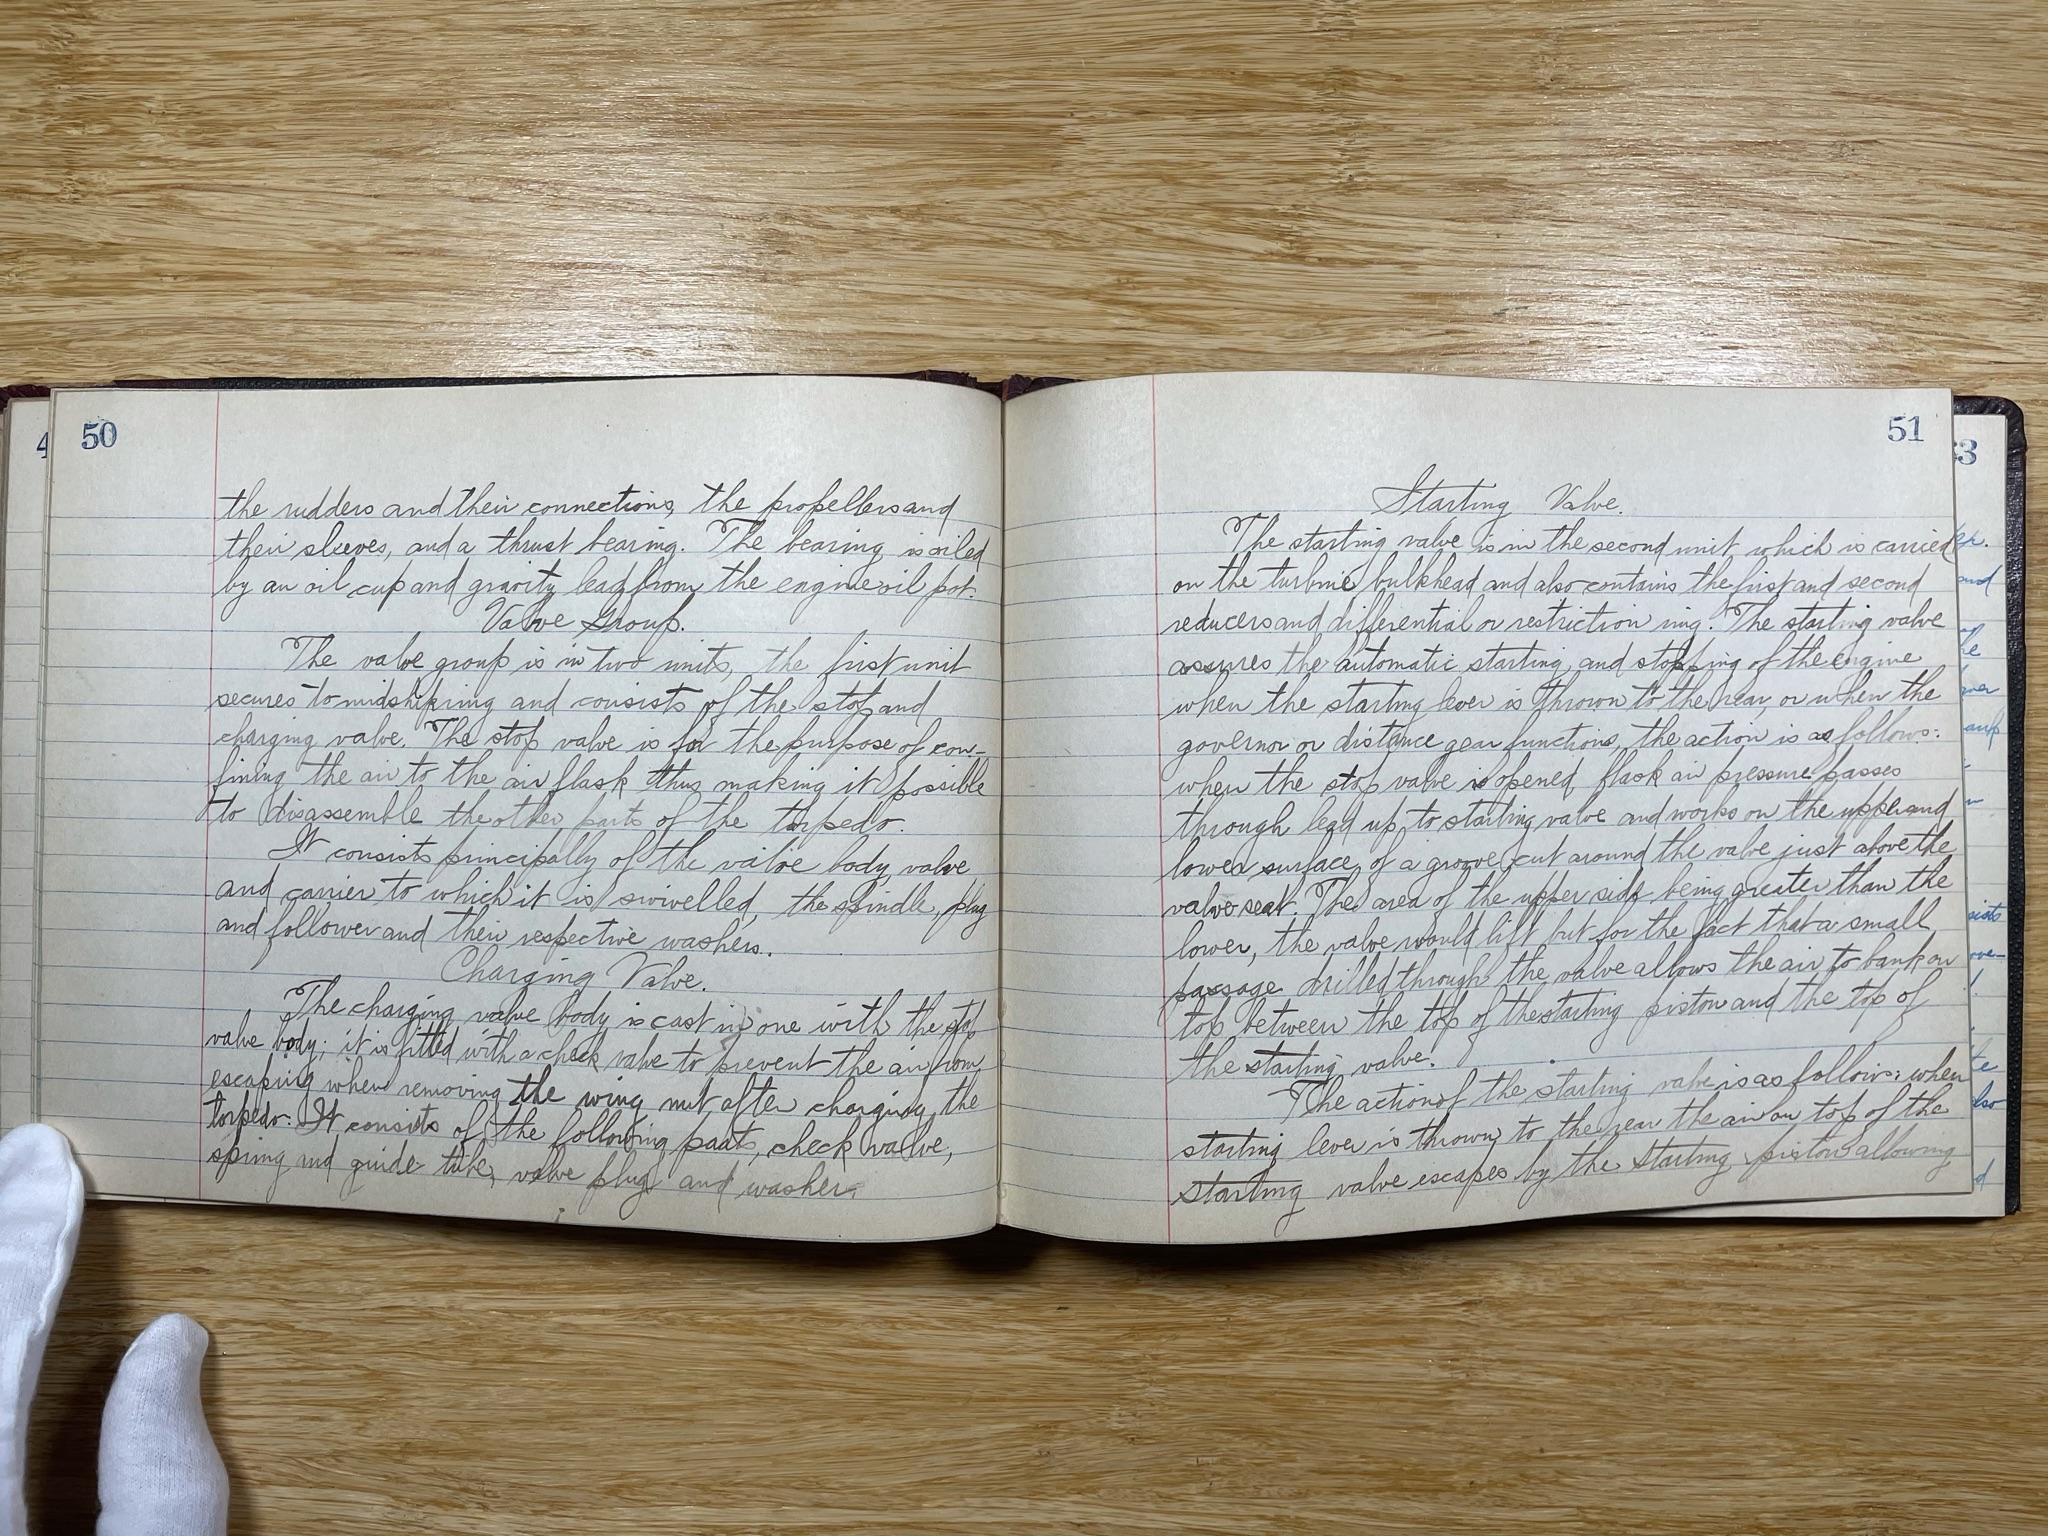 50
the rudders and their connections, the propellers and
their sleeves, and a thrust bearing. The bearing is oiled
by an oil cup and gravity lead from the engine oil pot.
Valve Group.
The valve group is in two units, the first unit
secures to midship ring and consists of the stop and
charging valve. The stop valve is for the purpose of con-
fining the air to the air flask thus making it possible
to disassemble the other parts of the torpedo.
It consists principally of the valve body, valve
and carrier to which it is swivelled, the spindle, plug
and follower and their respective washers.
Charging Valve.
The charging valve body is cast in one with the stop
valve body; it is fitted with a check valve to prevent the air from
escaping when removing the wing nut after charging the
torpedo. It consists of the following parts, check valve,
spring and guide tube, valve plug and washer.
51
Starting Valve.
The starting valve is in the second unit which is carried
on the turbine bulkhead and also contains the first and second
reducers and differential or restriction ring. The starting valve
assures the automatic starting and stopping of the engine
when the starting lever is thrown to the rear, or when the
governor or distance gear functions, the action is as follows:
when the stop valve is opened, flask air pressure passes
through lead up to starting valve and works on the upper and
lower surface of a groove cut around the valve just above the
valve seat. The area of the upper side being greater than the
lower, the valve would lift but for the fact that a small
passage drilled through the valve allows the air to bank on
top between the top of the starting piston and the top of
the starting valve.
The action of the starting valve is as follows: when
starting lever is thrown to the rear the air on top of the
starting valve escapes by the starting piston allowing